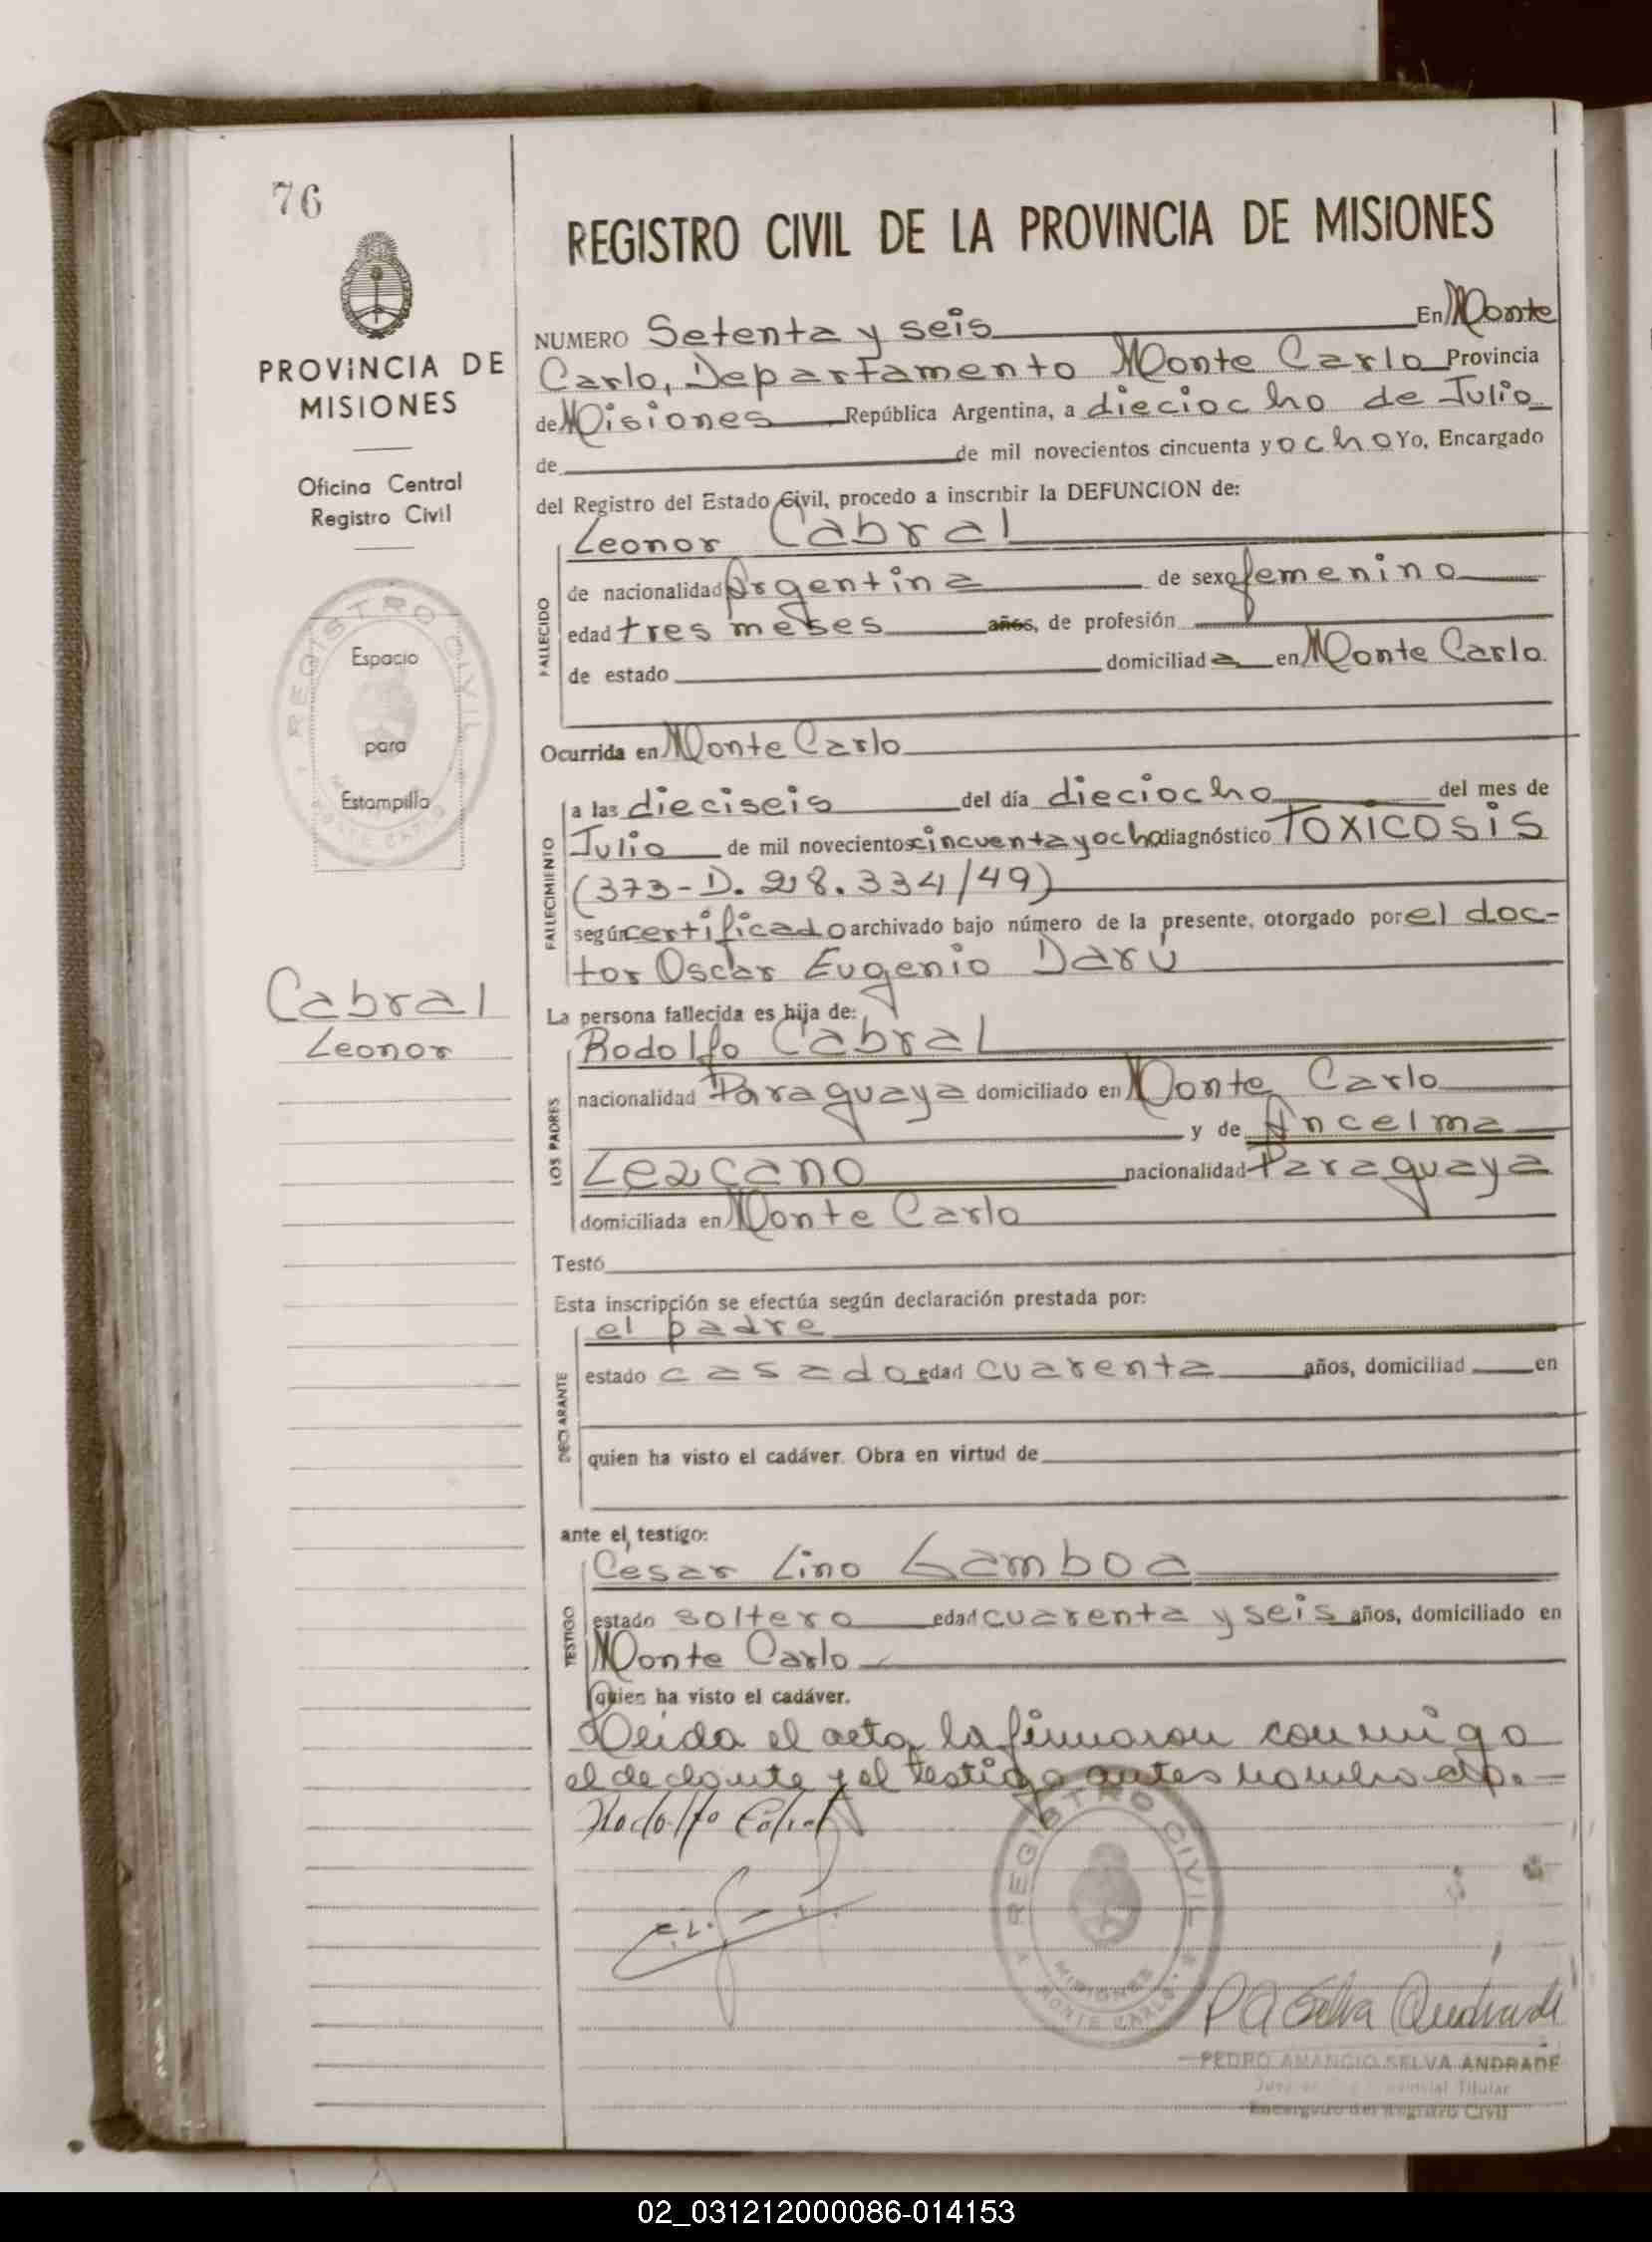 76
REGISTRO CIVIL DE LA PROVINCIA DE MISIONES
PROVINCIA DE
MISIONES
Oficina Central
Registro Civil
REGISTRO CIVIL
Espacio
para
Estampilla
Cabral
Leonor
NUMERO Setenta y seis En Monte
Carlo, Departamento Monte Carlo Provincia
de Misiones República Argentina, a dieciocho de Julio
de de mil novecientos cincuenta y ocho Yo, Encargado
del Registro del Estado Civil, procedo a inscribir la DEFUNCION de:
Leonor Cabral
FALLECIDO
de nacionalidad Argentina de sexo femenino
edad tres meses años, de profesión
de estado domiciliada en Monte Carlo
Ocurrida en Monte Carlo
FALLECIMIENTO
a las dieciseis del día dieciocho del mes de
Julio de mil novecientos cincuenta y ocho diagnóstico TOXICOSIS
(373-D. 28.334/49)
según certificado archivado bajo número de la presente, otorgado por el doc-
tor Oscar Eugenio Darú
La persona fallecida es hija de:
LOS PADRES
Rodolfo Cabral
nacionalidad Paraguaya domiciliado en Monte Carlo
y de Ancelma
Lezcano nacionalidad Paraguaya
domiciliada en Monte Carlo
Testó
Esta inscripción se efectúa según declaración prestada por:
DECLARANTE
el padre
estado casado edad cuarenta años, domiciliad en
quien ha visto el cadáver. Obra en virtud de
ante el testigo:
TESTIGO
Cesar Lino Gamboa
estado soltero edad cuarenta y seis años, domiciliado en
Monte Carlo
quien ha visto el cadáver.
Leida el acta, la firmaron conmigo
el declante y el testigo antes nombrado.-
Rodolfo Cabral
REGISTRO CIVIL
MISIONES
MONTE CARLO
P A Selva Andrade
PEDRO AMANCIO SELVA ANDRADE
Titular
Encargado del Registro Civil
02_031212000086-014153